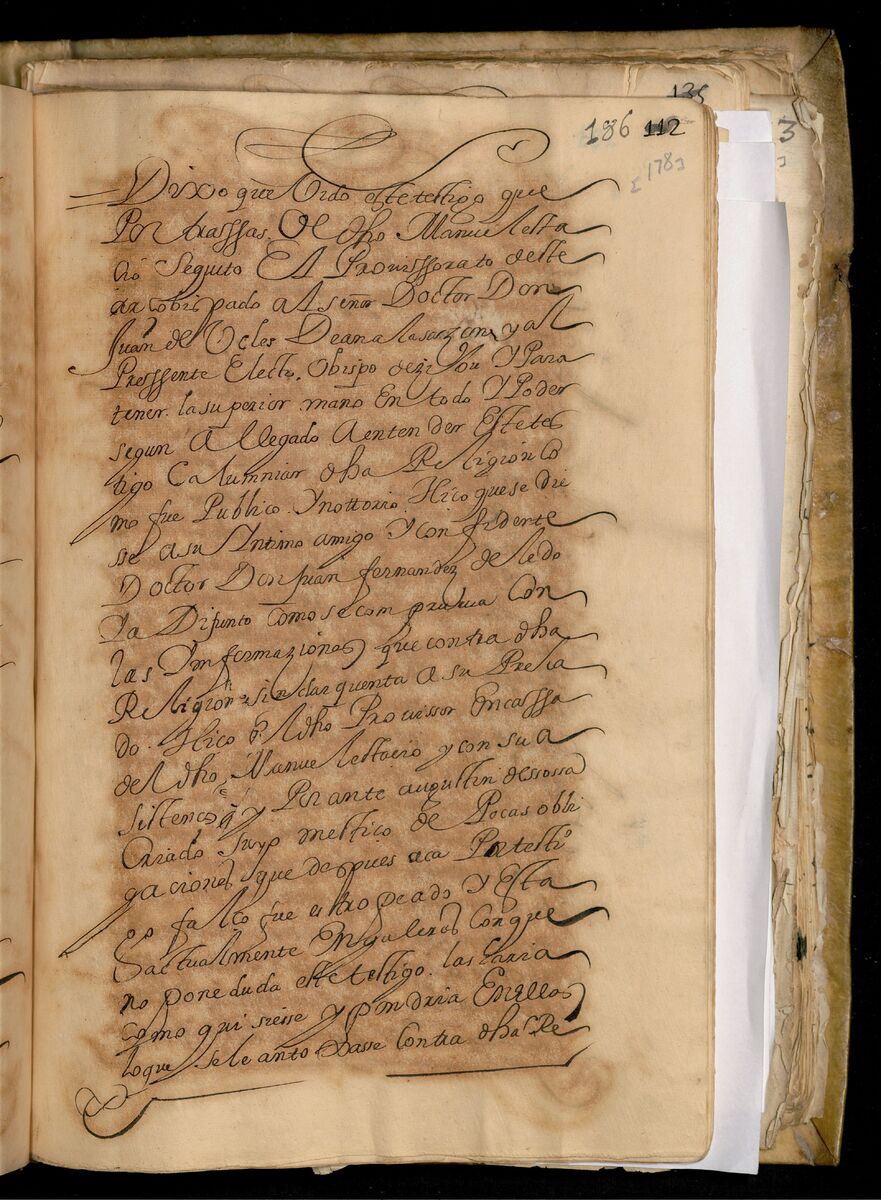 135
186 112
[178]
3
Dixo que bido este testigo que
Por trassas. De dho Manuel esta
cio Seguito El Provissorato deste
arcobispado al señor Doctor Don
Juan de Ocles Dean a la sazon y al
Pressente Electo. Obispo de Y Para
tener. la superior. mano En todo Y Poder
segun A llegado A entender Estetes
tigo Calumniar dha Religion Co
mo fue Publico. Y nottorio. Hico que se die
sse a su Yntimo amigo Y confidente
Doctor Don Juan fernandez de ledo
Ya Difunto Como se comprueva Con
las Ymformaziones que contra dha
Religion sin dar quenta a su Prela
do. Hico el dho Provissor En cassa
del dho. Manuel estacio y con su a
sistencia y Por ante augustin de sossa
Criado suyo mestico de Pocas obli
gaciones que despues aca Por testi
go falço fue estropeado Y Esta
actualmente En galeras Con que
no pone duda este testigo. las haria
como quisiesse y pondria En ellas
lo que se le antoxasse Contra dha Re